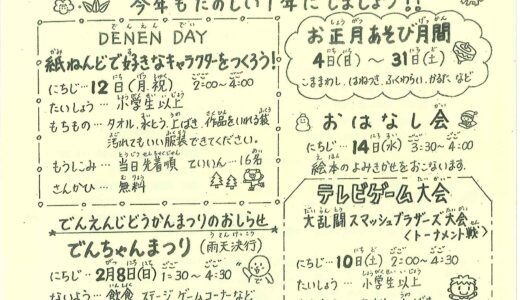 今年もたのしい1年にしましょう!!
でん えん
DENEN DAY
かみ す
紙ねんどで好きなキャラクターをつくろう!
にちじ…12日(月.祝) 2:00〜4:00
たいしょう…小学生以上
もちもの…タオル、水とう、上ばき、作品をいれる袋
汚れてもいい服装できてください。
もうしこみ…当日先着順 ていいん…16名
さんかひ…無料
でんえんじどうかんまつりのおしらせ
でんちゃんまつり(雨天決行)
にちじ…2月8日(日) 1:30〜4:30
ないよう…飲食 ステージ ゲームコーナーなど
お正月あそび月間
4日(日)〜31日(土)
こままわし、はねつき、ふくわらい、かるた など
おはなし会
にちじ…14日(水) 3:30〜4:00
絵本のよみきかせをおこないます。
テレビゲーム大会
大乱闘スマッシュブラザーズ大会
〈トーナメント戦〉
にちじ…10日(土) 2:00〜4:00
たいしょう…小学生以上